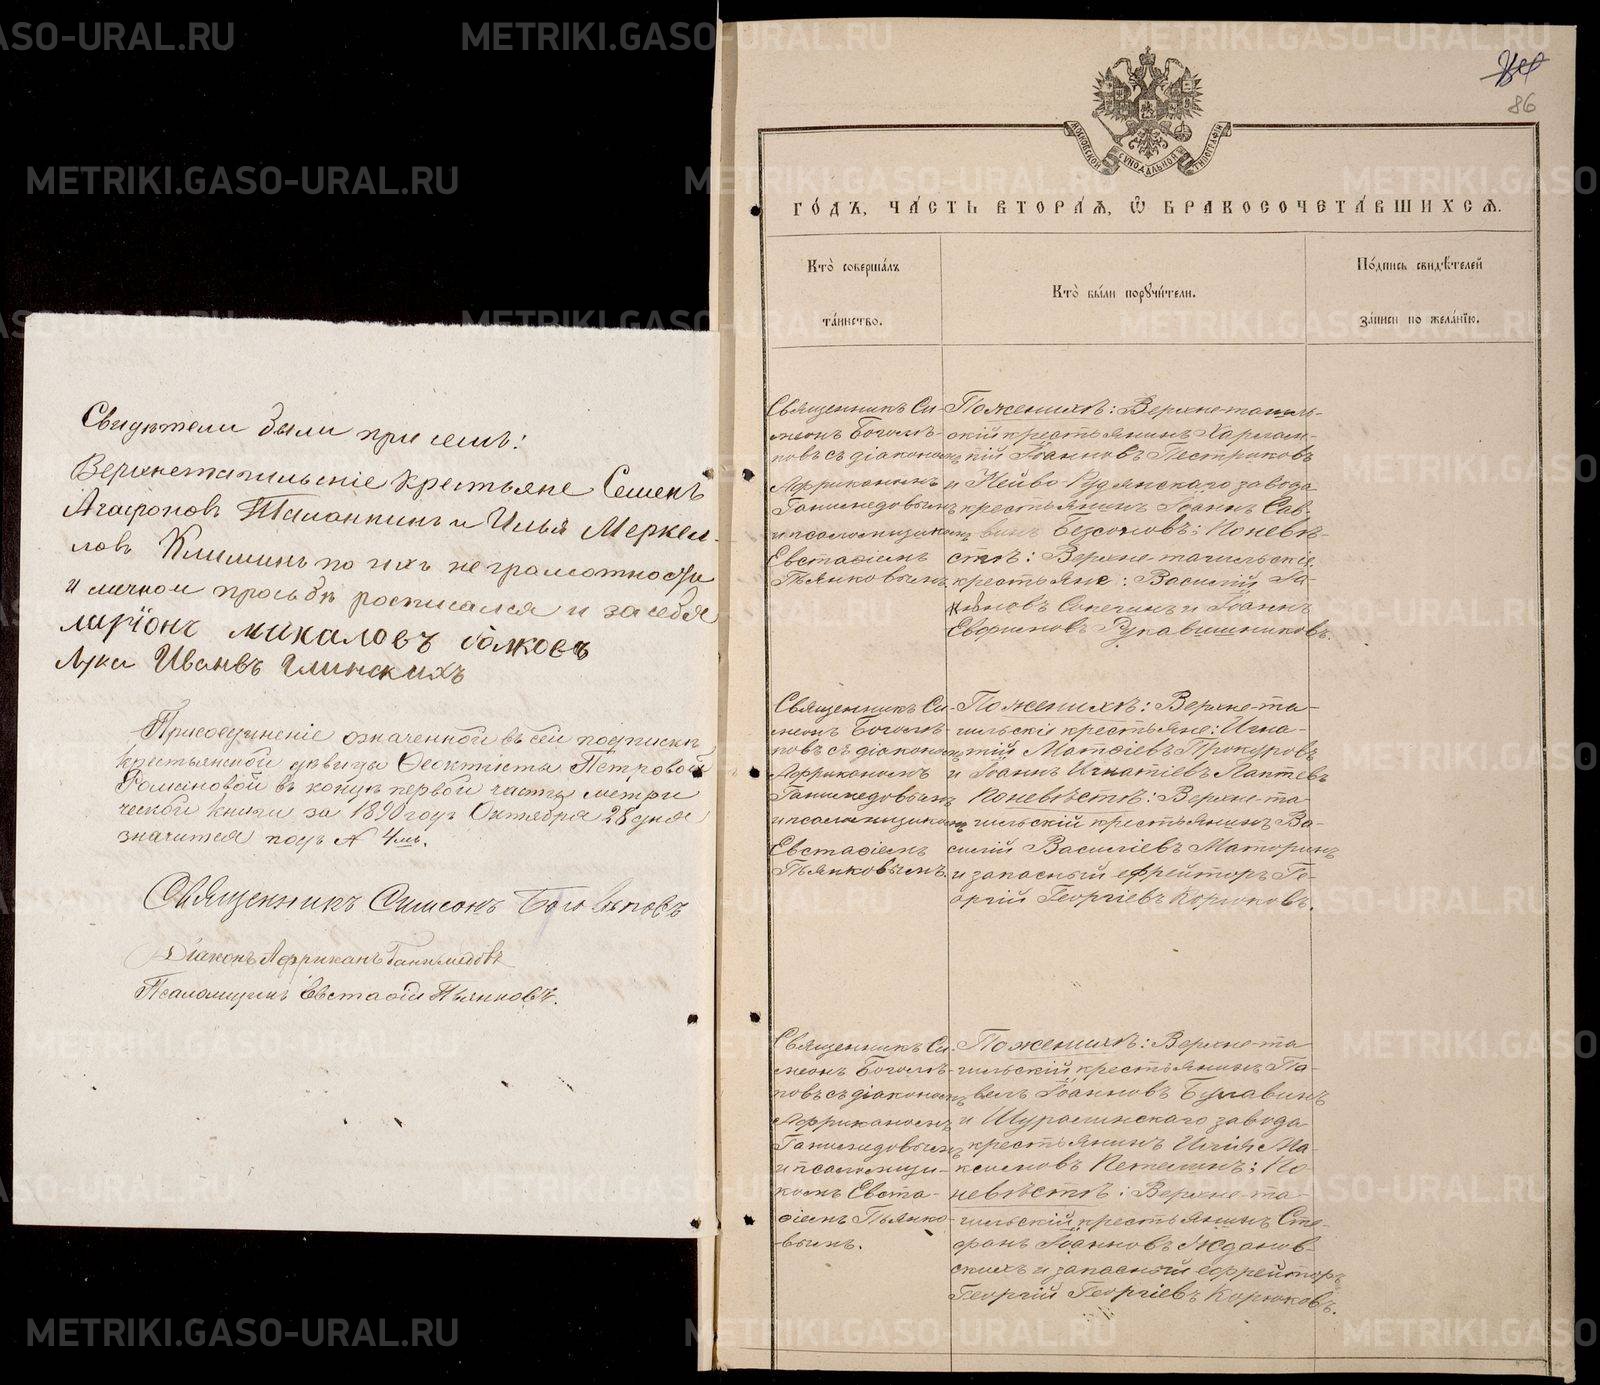 Свидѣтели были при семъ:
Верхнетагильскіе крестьяне Семенъ
Агафоновъ Таланкинъ и Илья Меркел-
ловъ Климинъ по ихъ неграмотности
и личной просьбѣ росписался и за себя
ларіонъ Михаловъ
Лука Ивановъ Глинскихъ
Присоединеніе означенной въ сей подпискѣ
крестьянской дѣвицы Ѳеоктисты Петровой
Романовой въ концѣ первой части метри
ческой книги за 1890 годъ Октября 28 дня
значится подъ № 4мъ.
Священникъ Симеонъ Боголѣповъ
Діаконъ Африканъ Ганимедовъ
Псаломщикъ Евстафій Пьянковъ.
86
МОСКОВСКОЙ СѴНОДАЛЬНОЙ ТИПОГРАФІИ
ГО́ДЪ, ЧА́СТЬ ВТОРА́Ѧ, Ѽ БРАКОСОЧЕТА́ВШИХСѦ.
Кто̀ соверша́лъ
та́инство.
Кто̀ бы́ли порꙋчи́тели.
По́дпись свидѣ́телей
за́писи по жела́нїю.
Священникъ Си-
меонъ Боголѣ-
повъ съ діакономъ
Африканомъ
Ганимедовымъ
и псаломщикомъ
Евстафіемъ
Пьянковымъ
По женихѣ: Верхнетагиль-
скій крестьянинъ Харлам-
пій Іоанновъ Пестриковъ
и Нейво Рудянскаго завода
крестьянинъ Іоаннъ Сав-
винъ Бузоновъ; по невѣ-
стѣ: Верхне-тагильскіе
крестьяне: Василій
и Іоаннъ
Рукавишниковъ.
Священникъ Си-
меонъ Боголѣ-
повъ съ діакономъ
Африканомъ
Ганимедовымъ
и псаломщикомъ
Евстафіемъ
Пьянковымъ
По женихѣ: Верхне-та-
гильскіе крестьяне: Игна-
тій Матфіевъ Прокуровъ
и Іоаннъ Игнатіевъ Лаптевъ
По невѣстѣ: Верхне-та-
гильскій крестьянинъ Ва-
силій Василіевъ Маторинъ
и запасный ефрейторъ Ге-
оргій Георгіевъ Корюковъ.
Священникъ Си-
меонъ Боголѣ-
повъ съ діакономъ
Африканомъ
Ганимедовымъ
и псаломщи-
комъ Евста-
фіемъ Пьянко-
вымъ.
По женихѣ: Верхне-та-
гильскій крестьянинъ Па-
велъ Іоанновъ Булавинъ
и Шуралинскаго завода
крестьянинъ Илія Ма-
ксимовъ Петелинъ; по
невѣстѣ: Верхне-та-
гильскій крестьянинъ Сте-
фанъ Іоанновъ Ждановъ-
скихъ и запасный ефрейторъ
Георгій Георгіевъ Корюковъ.